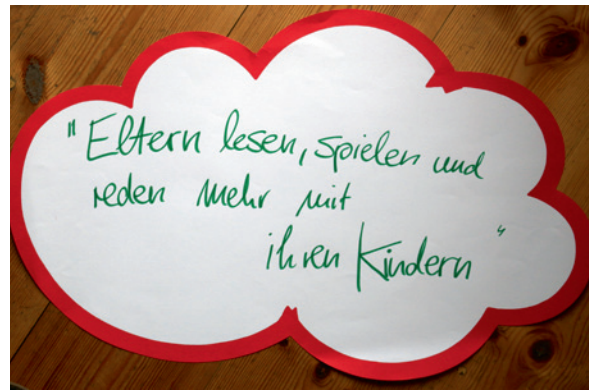 "Eltern lesen, spielen und
reden mehr mit
ihren Kindern"